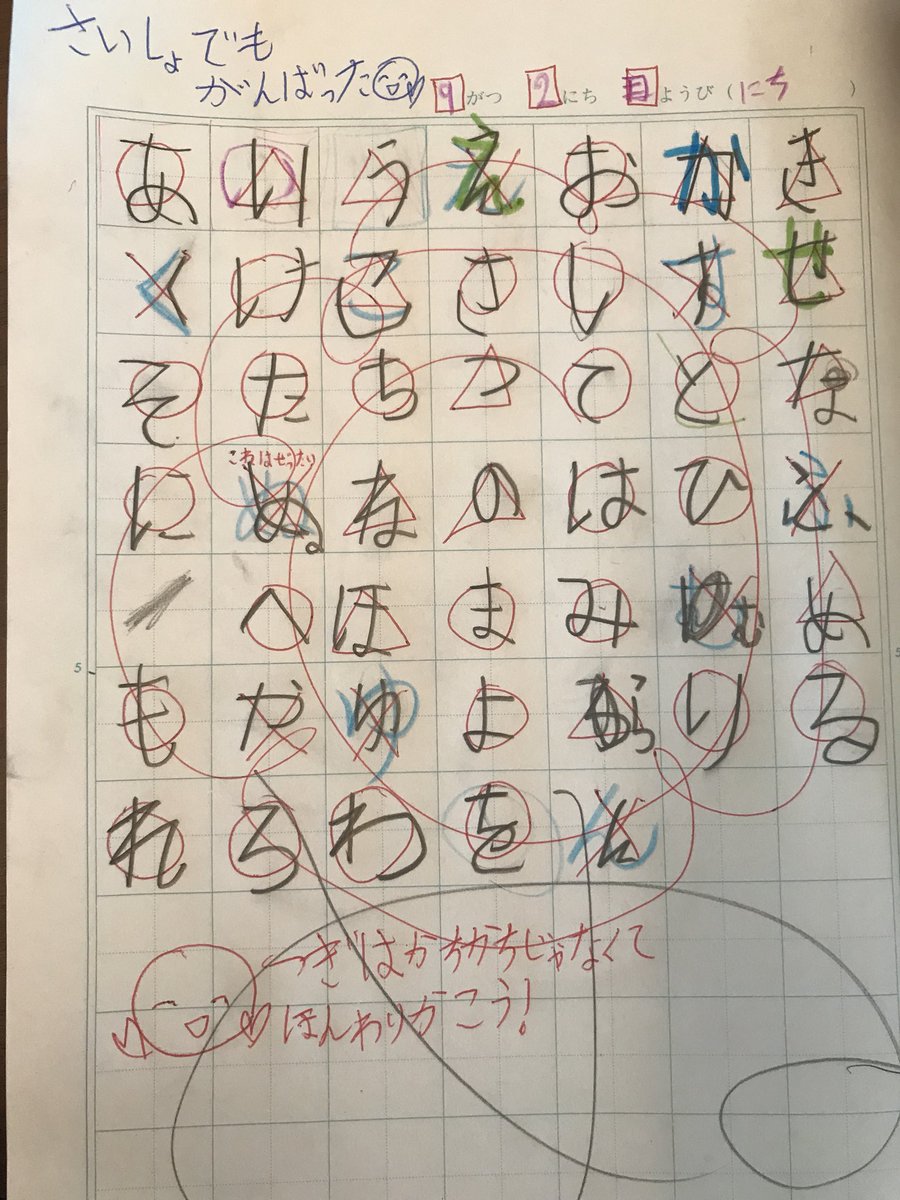 さいしょでも
がんばった
9がつ 2にち 日ようび(にち)
あ い う え お か き
く け こ さ し す せ
そ た ち つ て と な
これはぜったい
に ぬ ね の は ひ ふ
へ ほ ま み む め
も や ゆ よ ら り る
れ ろ わ を ん
5
つぎはかちかちじゃなくて
ほんわりがこう!